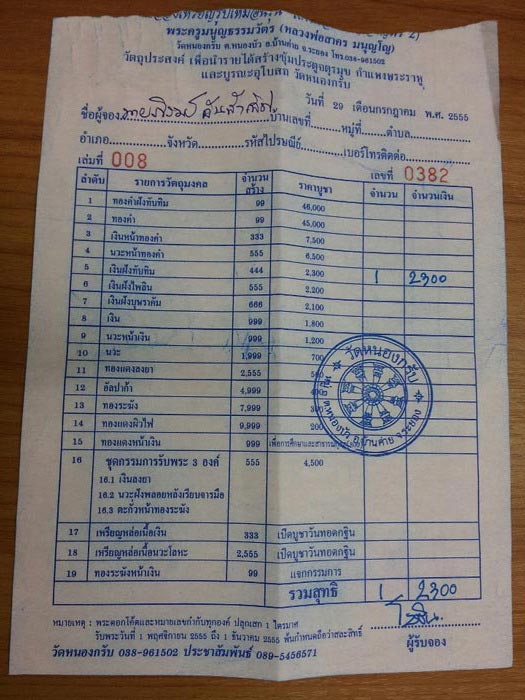 พระครูมนูญธรรมวัตร (หลวงพ่อสาคร มนุญโญ)
วัดหนองกรับ ต.หนองบัว อ.บ้านค่าย จ.ระยอง โทร.038-961502
วัตถุประสงค์ เพื่อนำรายได้สร้างซุ้มประตูจตุรมุข กำแพงพระราหู
และบูรณะอุโบสถ วัดหนองกรับ
วันที่ 29 เดือนกรกฎาคม พ.ศ. 2555
ชื่อผู้จอง บ้านเลขที่ หมู่ที่ ตำบล
อำเภอ จังหวัด รหัสไปรษณีย์ เบอร์โทรติดต่อ
เล่มที่ 008 เลขที่ 0382
ลำดับ รายการวัตถุมงคล จำนวนสร้าง ราคาบูชา จำนวน จำนวนเงิน
1 ทองคำฝังทับทิม 99 46,000
2 ทองคำ 99 45,000
3 เงินหน้าทองคำ 333 7,500
4 นวะหน้าทองคำ 555 6,500
5 เงินฝังทับทิม 444 2,300 1 2300
6 เงินฝังไพลิน 555 2,200
7 เงินฝังบุษราคัม 666 2,100
8 เงิน 999 1,800
9 นวะหน้าเงิน 999 1,200
10 นวะ 1,999 700
11 ทองแดงลงยา 2,555
12 อัลปาก้า 4,999
13 ทองระฆัง 7,999
14 ทองแดงผิวไฟ 9,999 200
15 ทองแดงหน้าเงิน 999 เพื่อการศึกษาและสาธารณ
16 ชุดกรรมการรับพระ 3 องค์ 555 4,500
16.1 เงินลงยา
16.2 นวะฝังพลอยหลังเรียบจารมือ
16.3 ตะกั่วหน้าทองระฆัง
17 เหรียญหล่อเนื้อเงิน 333 เปิดบูชาวันทอดกฐิน
18 เหรียญหล่อเนื้อนวะโลหะ 2,555 เปิดบูชาวันทอดกฐิน
19 ทองระฆังหน้าเงิน 99 แจกกรรมการ
รวมสุทธิ 1 2300
วัดหนองกรับ
ต.หนองบัว อ.บ้านค่าย จ.ระยอง
หมายเหตุ : พระตอกโค๊ดและหมายเลขกำกับทุกองค์ ปลุกเสก 1 ไตรมาศ
รับพระวันที่ 1 พฤศจิกายน 2555 ถึง 1 ธันวาคม 2555 พ้นกำหนดถือว่าสละสิทธิ์
ผู้รับจอง
วัดหนองกรับ 038-961502 ประชาสัมพันธ์ 089-5456571